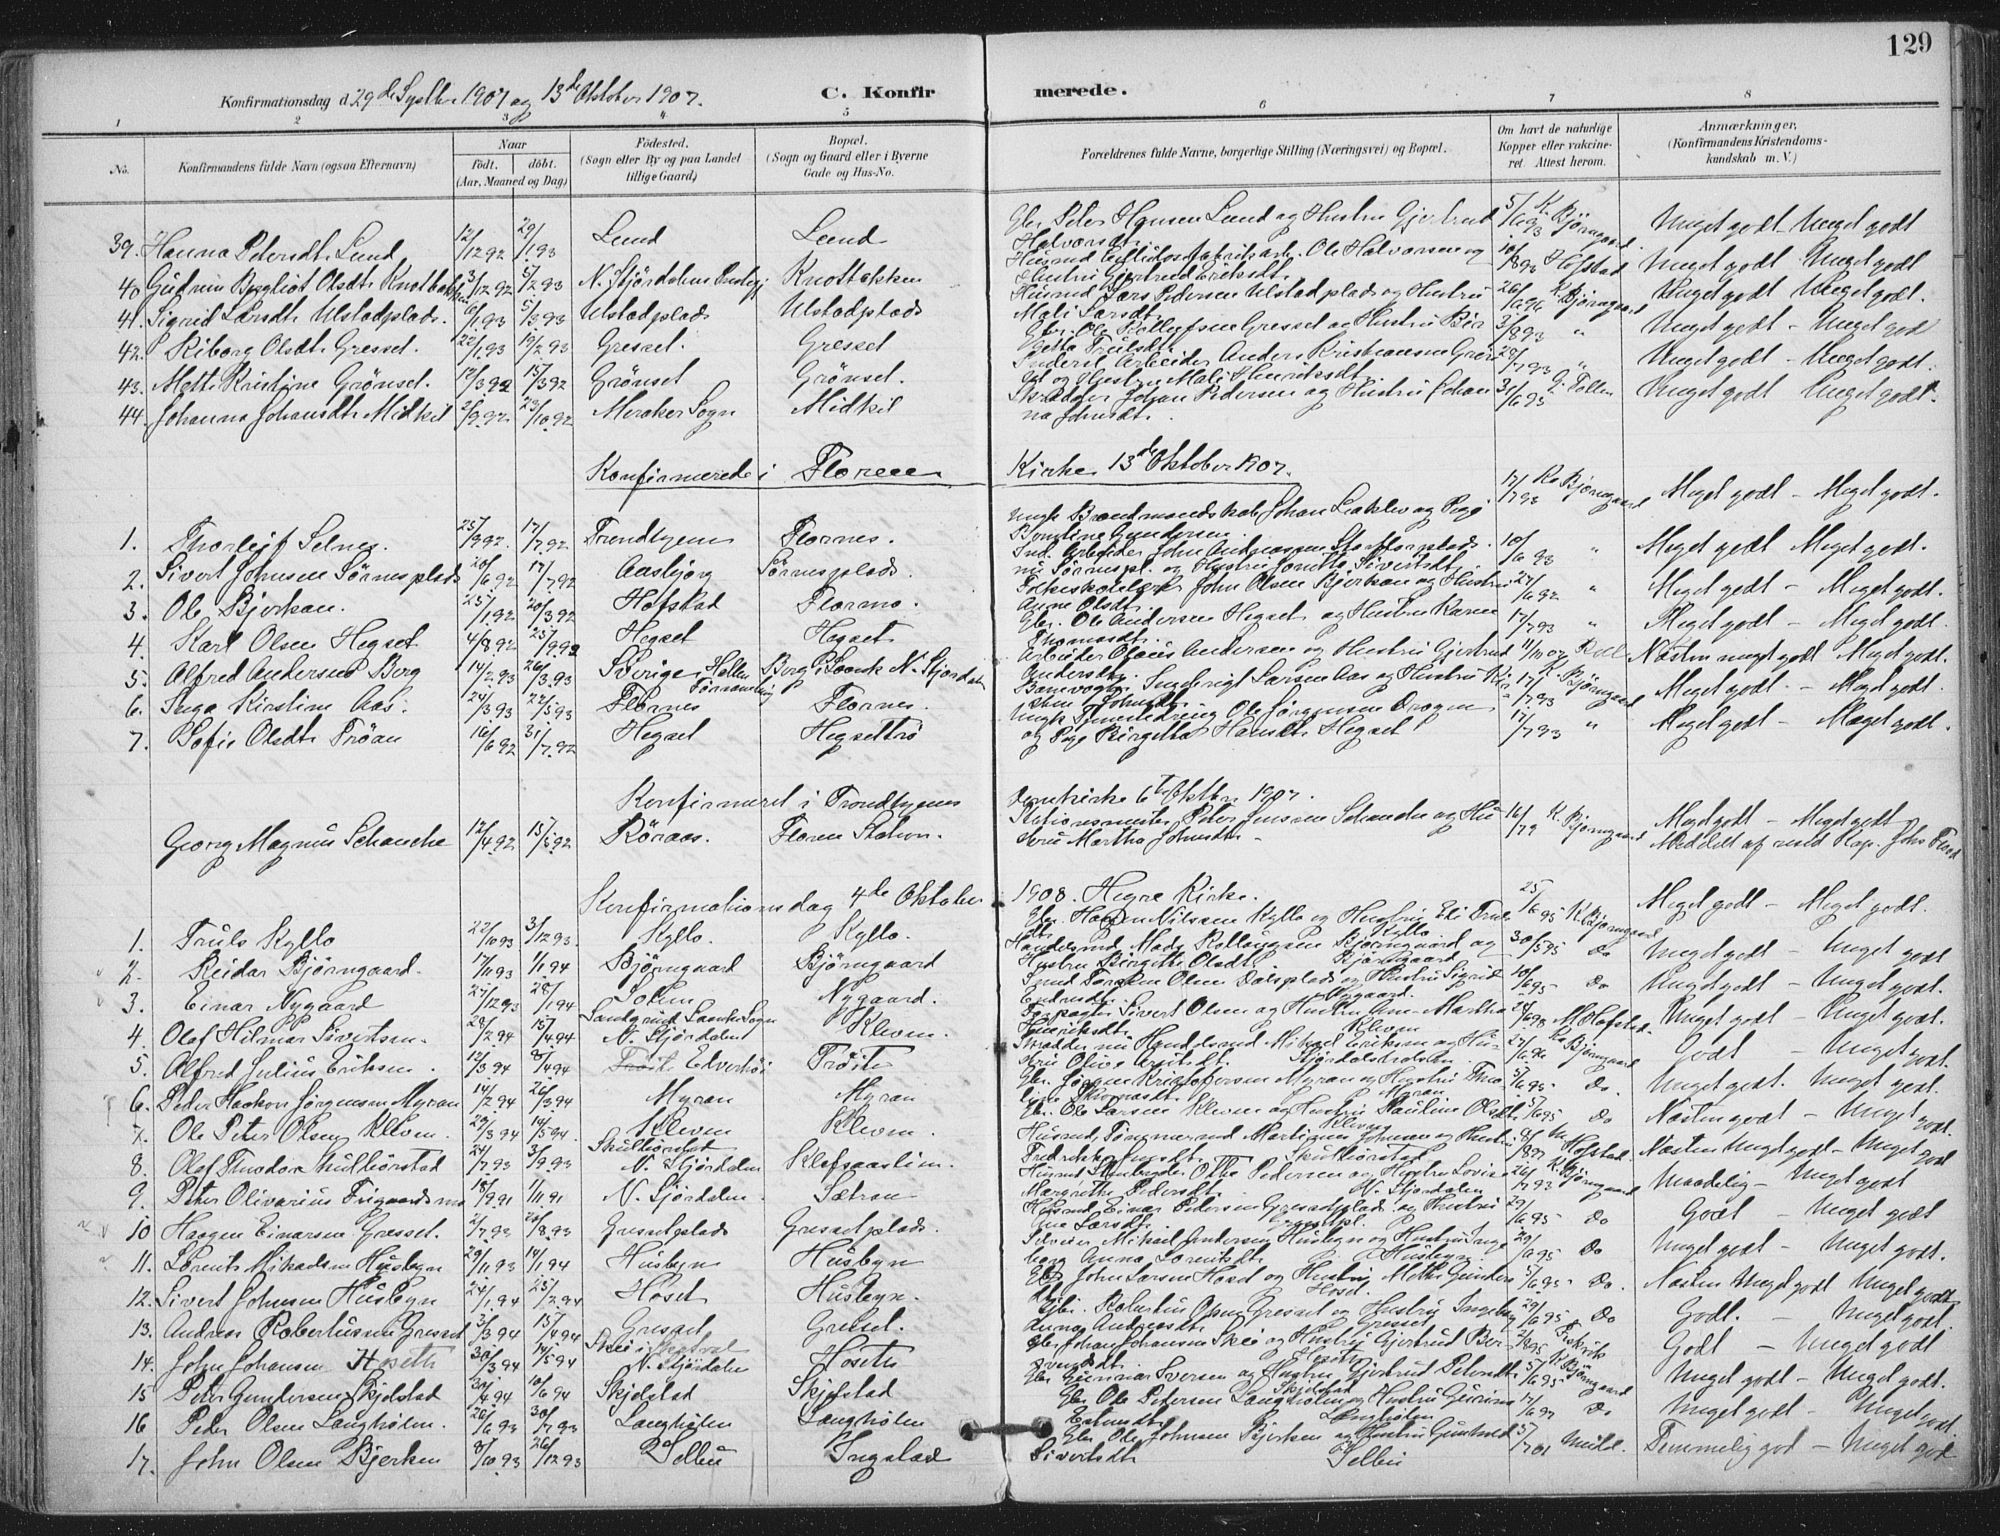 129
Konfirmationsdag d 29de Septbr 1907 og 13de Oktober 1907. C. Konfirmerede.
1 2 3 4 5 6 7 8
No. Konfirmandens fulde Navn (ogsaa Efternavn) Naar födt. döbt. (Aar, Maaned og Dag) Födested. (Sogn eller By og paa Landet tillige Gaard) Bopæl. (Sogn og Gaard eller i Byerne Gade og Hus-No. Forældrenes fulde Navne, borgerlige Stilling (Næringsvei) og Bopæl. Om havt de naturlige Kopper eller vaccineret. Attest herom. Anmærkninger, (Konfirmandens Kristendomskundskab m. V.)
39. Hanna Petersdt. Lund 12/12 92 29/1 93 Lund Lund Gbr. Peter Hansen Lund og Hustru Gjertrud Halvorsdt. K. Bjørngaard Meget godt Meget godt
40 Gudrun Bergliot Olsdt. Knotbakken 31/12 92 5/2 93 N. Stjørdalens Knotbakken Ole Halvorsen og Hustru Gjertrud Eriksdt. Hofstad Meget godt Meget godt
41. Sigrid Larsdt. Ulstadplads. 6/1 93 5/3 93 Ulstadplads Ulstadplads Husmd Lars Pedersen Ulstadplads og Hustru Mali Larsdt. K. Bjørngaard Meget godt Meget godt.
42. Riborg Olsdt. Gresset. 22/1 93 19/2 93 Gresset. Gresset Gbr. Ole Rollefsen Gresset og Hustru Birgitte Trulsdt. 3/8 93 " Meget godt - Meget godt
43. Mette Kristine Grønset. 12/3 92 15/3 92 Grønset Grønset. Arbeider Anders Kristiansen Grønset og Hustru Mali Henriksdt. " Meget godt - Meget godt.
44. Johanna Johansdt. Midkil 2/9 92 23/10 92 Meraker Sogn Midkil Skrædder Johan Pedersen og Hustru Johanna Johnsdt. 31/6 95 Meget godt Meget godt.
Konfirmerede i Floren Kirke 13de Oktober 1907.
1. Thorleif Selnes. 25/3 92. 17/7 92 Trondhjem Flornes. Johan Leaklev og Pige Berntine Gundersen. 17/7 93 K. Bjørngaard Meget godt - Meget godt.
2. Sivert Johnsen Sørnesplads 20/6 92 17/7 92 Aasbjørg Sørnesplads. Arbeider John Andreassen nu Sørnespl. og Hustru Jonette Sivertsdt. 10/6 93 " Meget godt Meget godt.
3. Ole Bjerkan. 25/1 92 20/3 92 Hofstad Flormo. John Olsen Bjerkan og Hustru Anne Olsdt. 27/6 92 " Meget godt - Meget godt.
4. Karl Olsen Hegset 4/8 92 25/9 92 Hegset Hegset Gbr. Ole Andersen Hegset og Hustru Karen Thomasdt. 17/7 93 " Meget godt - Meget godt.
5. Alfred Andersen Borg 14/2 93 26/3 93 Sverige, Borg N. Stjørdalen Arbeider Olaus Andersen og Hustru Gjertrud Andersdt. Næsten meget godt Meget godt.
6. Inga Kirstine Aas. 24/3 93 22/5 93 Flornes Flornes. Banevogter Larsen Aas og Hustru Johnsdt. 17/7 93 K. Bjørngaard Meget godt. - Meget godt.
7. Sofie Olsdt. Trøan 16/6 92 31/7 92 Hegset Hegsettrø Ole Jørgensen og Pige Birgitha Hansdt. Hegset 17/7 93 " Meget godt - Meget godt.
Konfirmeret i Trondhjems Domkirke 6te Oktbr. 1907.
Georg Magnus Schanche 12/4 92 15/5 92 Röraas. Floren Station. Stationsmester Peter Jensen Schanche og Hustru Martha Johnsdt. K. Bjørngaard Meget godt - Meget godt Meddelt af resid Kap.
Konfirmationsdag 4de Oktober 1908. Hegre Kirke.
1. Truls Kyllo 22/10 93 3/12 93. Kyllo. Kyllo. Gbr. Nilsen Kyllo og Hustru Eli Trulsdt. Kyllo 25/6 95 K. Bjørngaard Meget godt - Meget godt.
2. Reidar Bjørngaard. 17/11 93 1/1 94 Bjørngaard Bjørngaard Handelsmd Mads Bjørngaard og Hustru Birgitte Olsdt. Bjørngaard 30/5 95 Do Meget godt - Meget godt
3. Einar Nygaard 27/12 93 28/1 94 Nygaard. Olsen Dalsplads og Hustru Sigrid Nygaard. 10/6 95 Do Meget godt - Meget godt.
4. Olaf Hilmar Sivertsen. 29/2 94 15/4 94 N. Stjørdalen Kleven. Sivert Olsen og Hustru Ane Martha Henriksdt. Kleven M. Hofstad Meget godt - Meget godt.
5. Alfred Julius Eriksen. 12/3 94 8/4 94 Trøite Elverhöi Trøite Skrædder nu Handelsmd Mikael Eriksen og Hustru Olive Stjørdalshalsen 27/6 96 K. Bjørngaard Godt - Meget godt.
6. Peder Haakon Jørgensen Myran 14/2 94 26/3 94 Myran Myran Gbr. Jørgen Kristofersen Myran og Hustru Thomasdt. Myran 5/6 95 Do. Meget godt. Meget godt.
7. Ole Peter Olsen Kleven. 29/3 94 14/5 94. Kleven Kleven. Gbr. Ole Larsen Kleven og Hustru Pauline Olsdt. Kleven 5/6 95 Do Næsten godt - Meget godt.
8. Olaf Theodor Skulbörstad 24/7 93 3/9 93 Skulbörstad N. Stjørdalen Klefsaaslien. Husmd, Tømmermd Martinus Johnsen og Hustru Skulbörstad Hofstad. Næsten Meget godt - Meget godt
9. Peter Olivarius Trigaardsmo 18/9 91 1/11 91 N. Stjørdalen. Sætran Otto Pedersen og Hustru Lovise Margrethe Pedersdt. N. Stjørdalen 26/7 93 K. Bjørngaard Maadelig - Meget godt
10 Haagen Einarsen Gresset. 2/7 93 20/8 93 Gressetplads Gressetplads. Husmd Einar Pedersen Gressetplads. og Hustru Ane Larsdt. 29/6 95 Do Godt - Meget godt
11. Lorents Mikaelsen Husbyn 29/11 93 14/1 94 Husbyn Husbyn Selveier Mikael Andersen Husbyn og Hustru Ingeborg Anna Lorentsdt. Husbyn 29/6 95 Do Meget godt - Meget godt.
12. Sivert Johnsen Husbyn 24/1 94 25/2 94 Höset Husbyn. Gbr. John Larsen Hoset og Hustru Mette Gundersdt. Höset. 5/6 95 Do. Næsten Meget godt Meget godt
13. Andreas Robertusen Gresset 3/3 94 15/4 94 Gresset Gresset. Gbr. Robertus Olsen Gresset og Hustru Ingeborg Anna Andreasdt. Gresset 29/6 95 Do Godt. - Meget godt.
14. John Johansen Höseth 30/3 94 14/5 94 Skei i N. Stjørdalen Höseth Gbr. Johan Johansen Skei og Hustru Gjertrud Bersvendsdt. 2/8 95 Godt - Meget godt
15 Peter Gundersen Skjelstad 30/4 94 10/6 94 Skjelstad Skjelstad Gbr. Gunnar Iversen og Hustru Gjertrud Petersdt. Skjelstad 5/6 95 K. Bjørngaard Meget godt - Meget godt.
16 Peder Olsen Langholen. 26/6 93 30/7 93 Langholen Langholen Gbr. Ole Pedersen Langholen og Hustru Gurina Estensdt. Langholen Do Meget godt - Meget godt.
17. John Olsen Bjerken 8/10 93 26/12 93 Selbu Ingstad Gbr. Ole Johnsen Bjerken og Hustru Gunhild Sivertsdt. Selbu 5/7 01 Temmelig god - Meget god